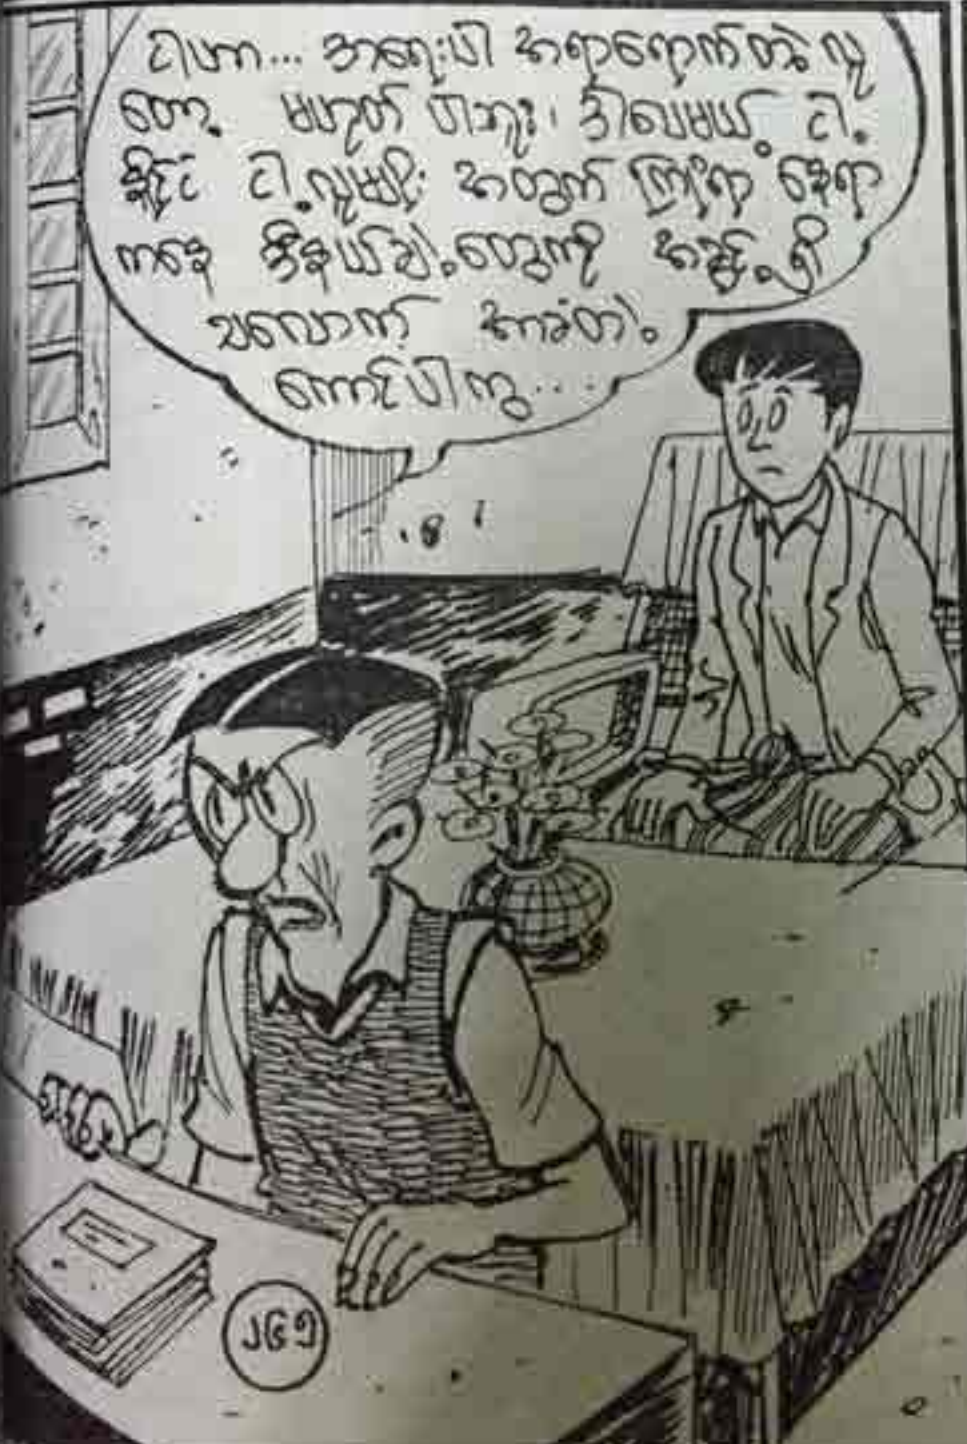 ငါဟာ... အရေးပါ အရာရောက်တဲ့ လူ
တော့ မဟုတ် ပါဘူး၊ ဒါပေမယ့် ငါ့
နိုင်ငံ ငါ့လူမျိုး အတွက် ကြုံရာ နေရာ
ကနေ ဒီနယ်ချဲ့တွေကို အခွင့်ရှိ
သလောက် အာခံတဲ့
ကောင်ပါကွ...
၂၆၅